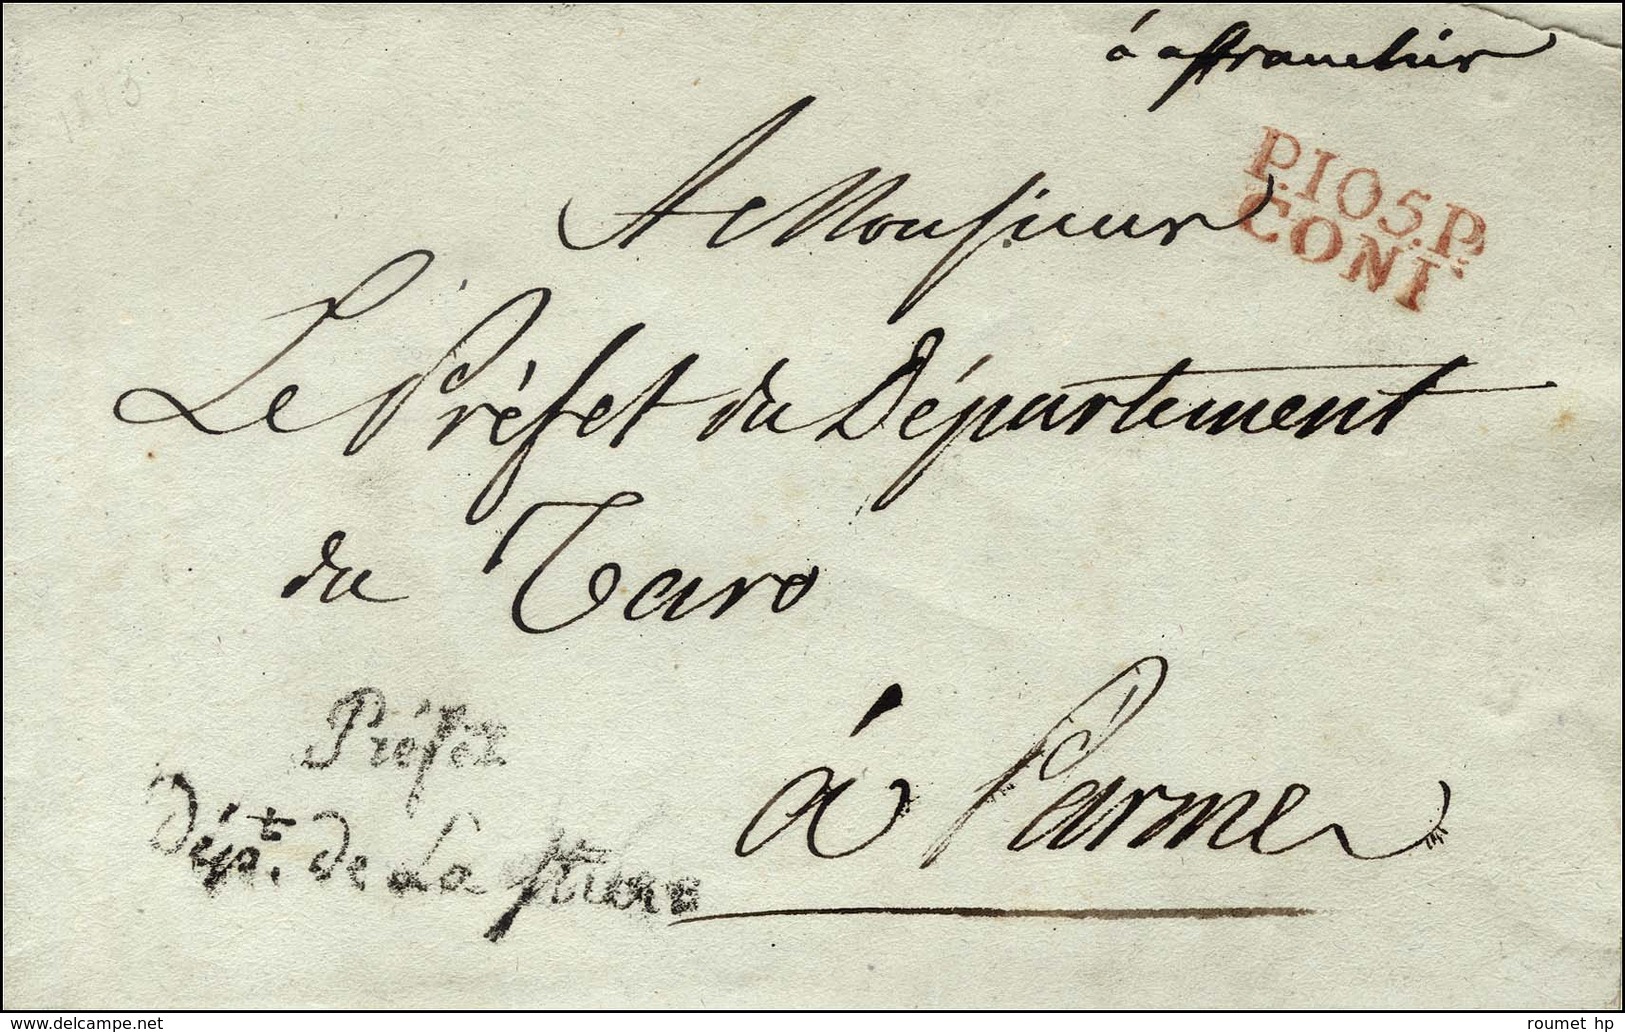 à affranchir
P.105.P.
CONI
A Monsieur
Le Préfet du Département
du Taro
Préfet
Dépt. de La Stura
à Parme
delcampe.net
roumet hp